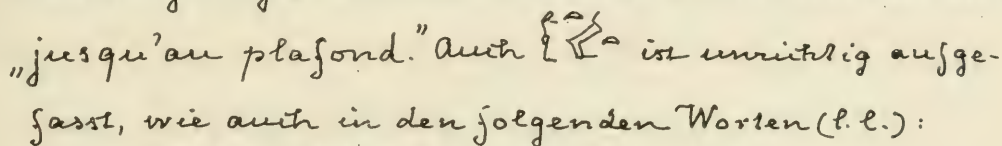 „jusqu'au plafond." Auch ist unrichtig aufge-
fasst, wie auch in den folgenden Worten (l. l.):